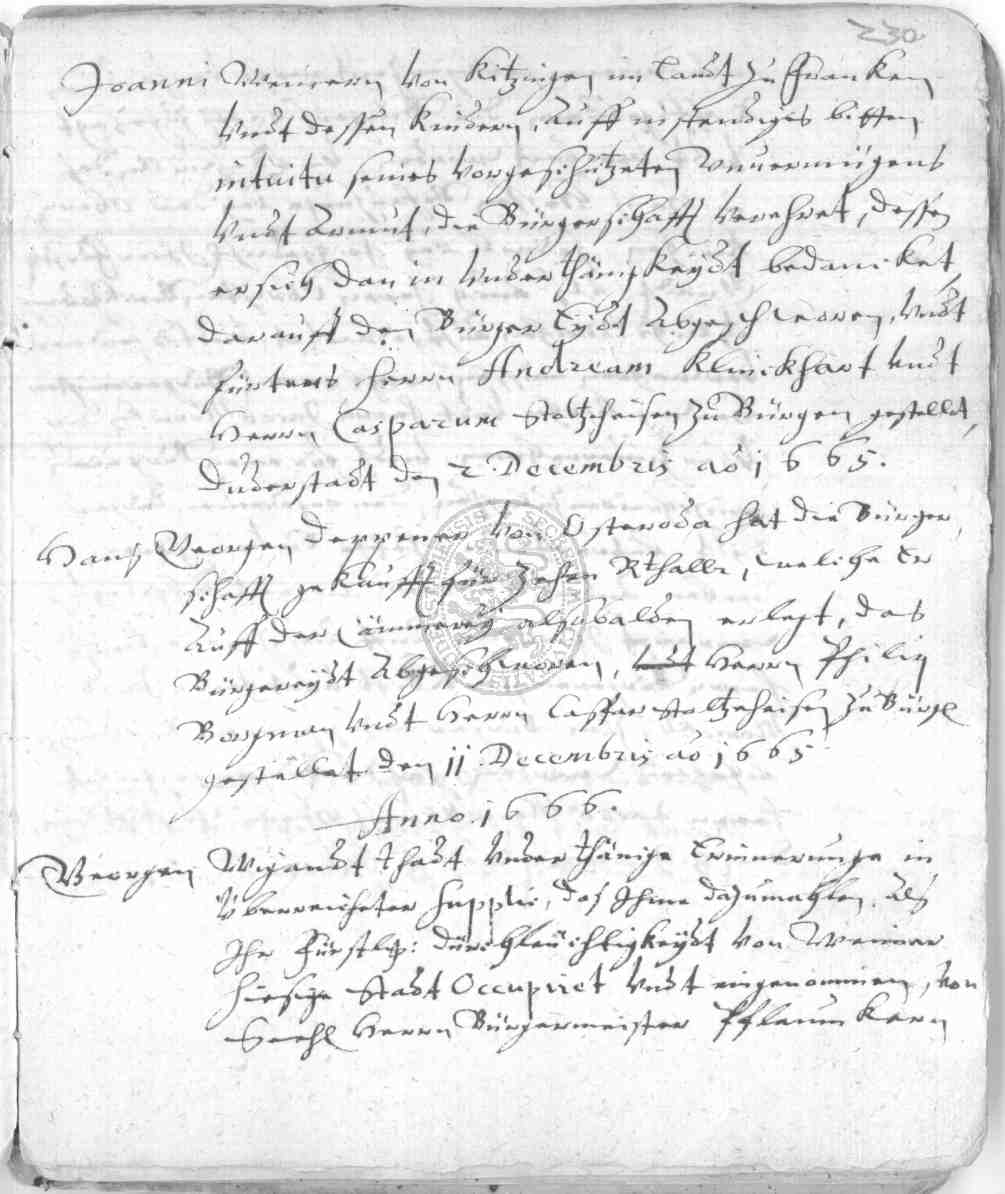 230
Joanni Weinern von Kitzingen im Landt zu Francken
undt dessen Kindern, auff instendiges bitten
intuitu seines vorgeschützeten Unvermügens
undt Armut, die Bürgerschafft verehret, dessen
er sich dan in underthänigkeydt bedancket,
darauff den Bürger Eydt abgeschworen, undt
fürters Herrn Andream Klinckhart undt
Herrn Casparum Stoltzeheusen zu Bürgen gestellet,
Duderstadt den 2 Decembris ao 1665.
Hans Georgen Deppener von Osteroda hat die Bürger,
schafft gekaufft für zehen Rthallr, welche Er
auff der Cämmerey alsobalden erlegt, das
Bürgereydt abgeschworen, undt Herrn Philip
Borgman undt Herrn Caspar Stoltzeheisen zu Bürgen
gestellet den 11 Decembris ao 1665
Anno. 1666.
Georgen Wigandt thadt underthänige Erinnerunge in
Überreicheter supplic, das Ihme dazumahlen, als
Ihr Fürstlch: Dürchleüchtigkeydt von Weimar
hiesige Stadt Occupiret undt eingenommen, von
Seehl Herrn Bürgermeister Pflaumkern